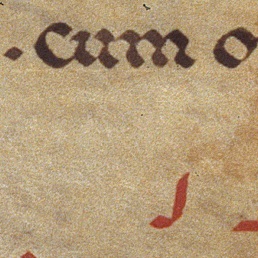 . cum o